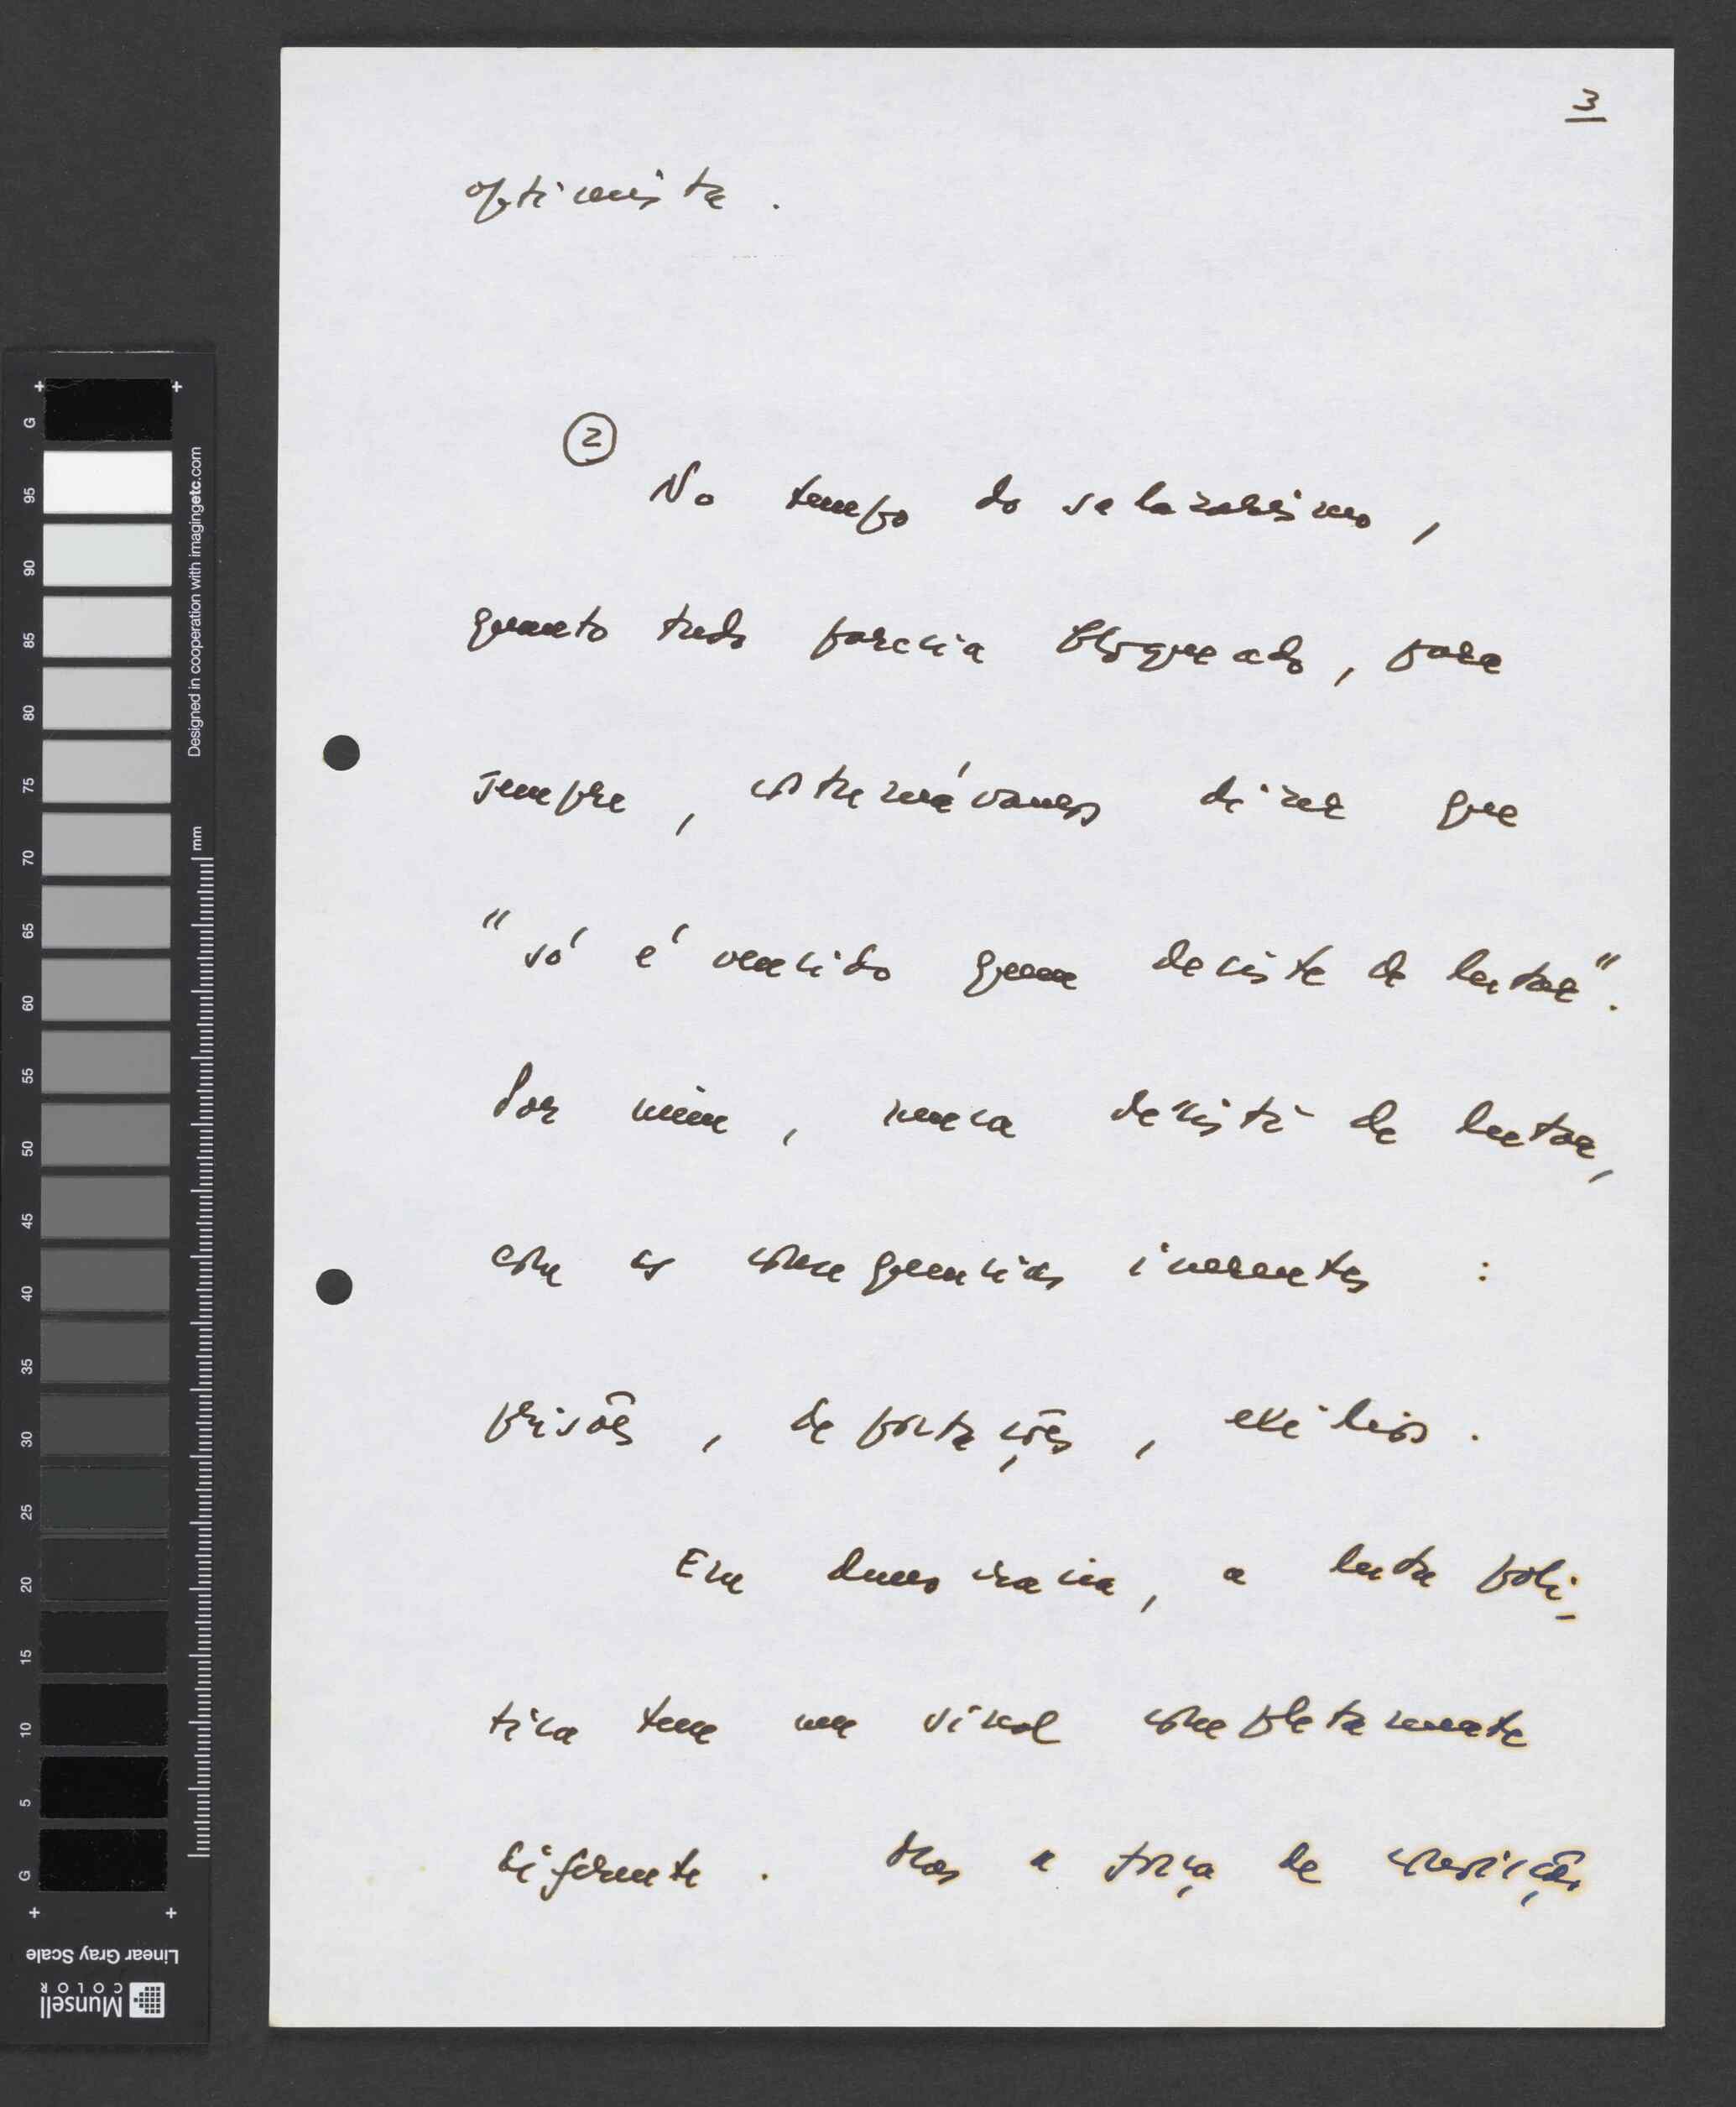 3
optimista.
②
No tempo do salazarismo,
quanto tudo parecia bloqueado, para
sempre, costumávamos dizer que
"só é vencido quem desiste de lutar".
Por mim, nunca desisti de lutar,
com as consequencias inerentes :
prisões, deportações, exílios.
Em democracia, a luta polí-
tica tem um nível completamente
diferente. Mas a força de convicção
G
95
90
85
80
75
70
65
60
55
50
45
40
35
30
25
20
15
10
5
G
mm
Designed in cooperation with imagingetc.com
Linear Gray Scale
Munsell
COLOR